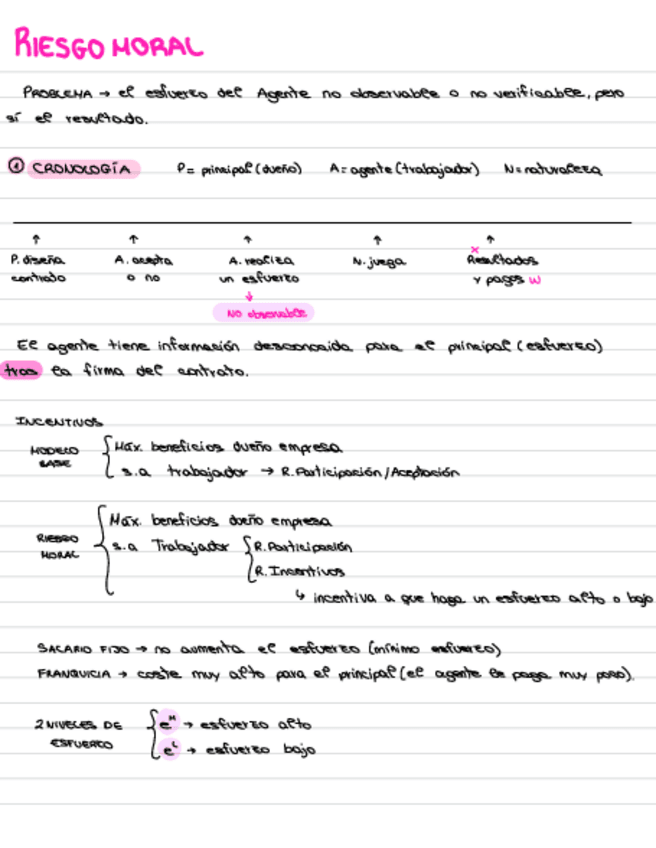 RIESGO MORAL
PROBLEMA → el esfuerzo del Agente no observable o no verificable, pero
sí el resultado.
① CRONOLOGÍA P = principal (dueño) A = agente (trabajador) N = naturaleza
↑ ↑ ↑ ↑ ↑
P. diseña A. acepta A. realiza N. juega x Resultados
contrato o no un esfuerzo y pagos w
↓
NO observable
El agente tiene información desconocida para el principal (esfuerzo)
tras la firma del contrato.
INCENTIVOS
MODELO BASE { Máx. beneficios dueño empresa
s.a trabajador → R. Participación/Aceptación
RIESGO MORAL { Máx. beneficios dueño empresa
s.a Trabajador { R. Participación
R. Incentivos
↳ incentiva a que haga un esfuerzo alto o bajo
SALARIO FIJO → no aumenta el esfuerzo (mínimo esfuerzo)
FRANQUICIA → coste muy alto para el principal (el agente le paga muy poco).
2 NIVELES DE { eᴴ → esfuerzo alto
ESFUERZO eᴸ → esfuerzo bajo